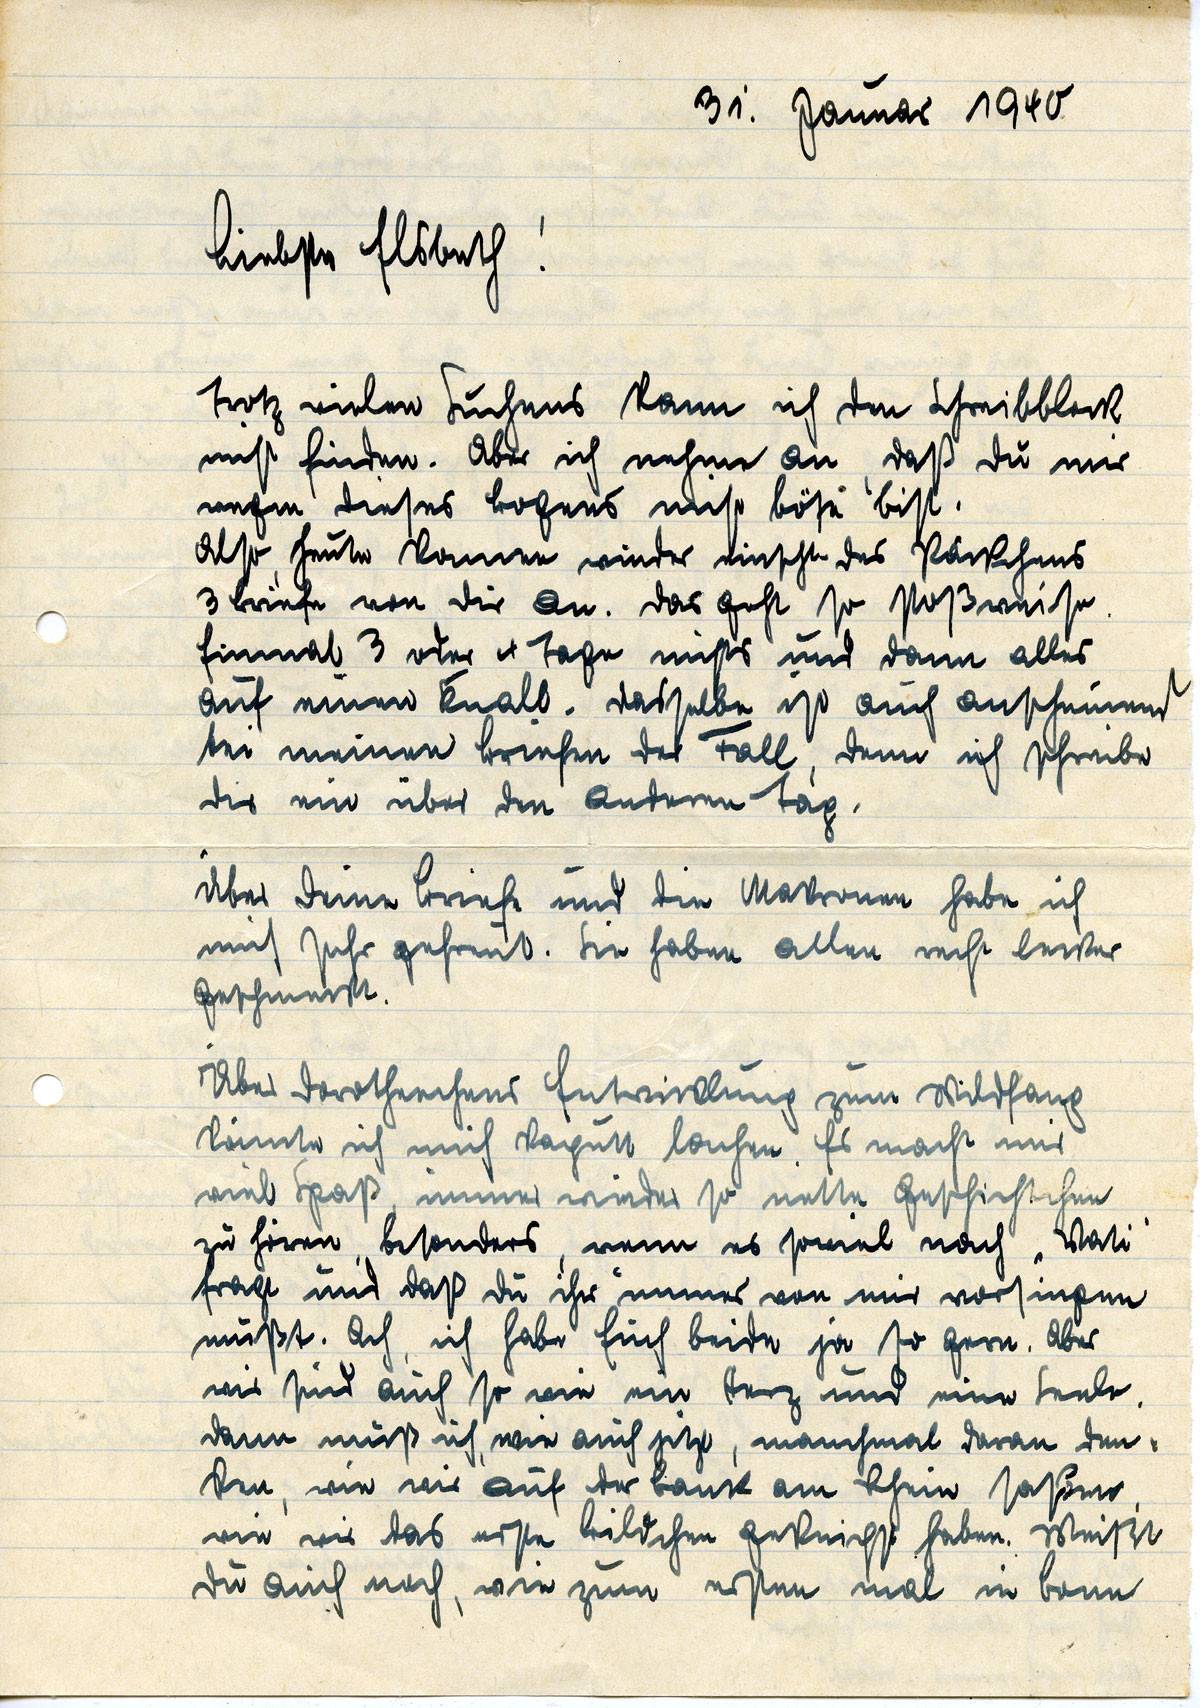 31. Januar 1940
Liebste Elsbeth!
Trotz vielen Suchens kann ich den Schreibblock
nicht finden. Aber ich nehme an, daß du mir
wegen dieses Bogens nicht böse bist.
Also, heute kamen wieder einschl. des Päckchens
3 Briefe von dir an. Das geht so stoßweise.
Einmal 3 oder 4 Tage nichts und dann alles
auf einen Knall. Dasselbe ist auch anscheinend
bei meinen Briefen der Fall, denn ich schreibe
dir ein über den anderen Tag.
Über deine Briefe und die Makronen habe ich
mich sehr gefreut. Sie haben allen recht lecker
geschmeckt.
Über Dorotheechens Entwicklung zum Wildfang
könnte ich mich kaputt lachen. Es macht mir
viel Spaß, immer wieder so nette Geschichtchen
zu hören, besonders, wenn es soviel nach „Vati“
fragt und daß du ihr immer von mir vorsingen
mußt. Ach, ich habe Euch beide ja so gern. Aber
wir sind auch so wie ein Herz und eine Seele.
Dann muß ich, wie auch jetzt, manchmal daran den-
ken, wie wir auf der Bank am Rhein saßen,
wie wir das erste Bildchen geknipst haben. Weißt
du auch noch, wie zum ersten mal in Bonn